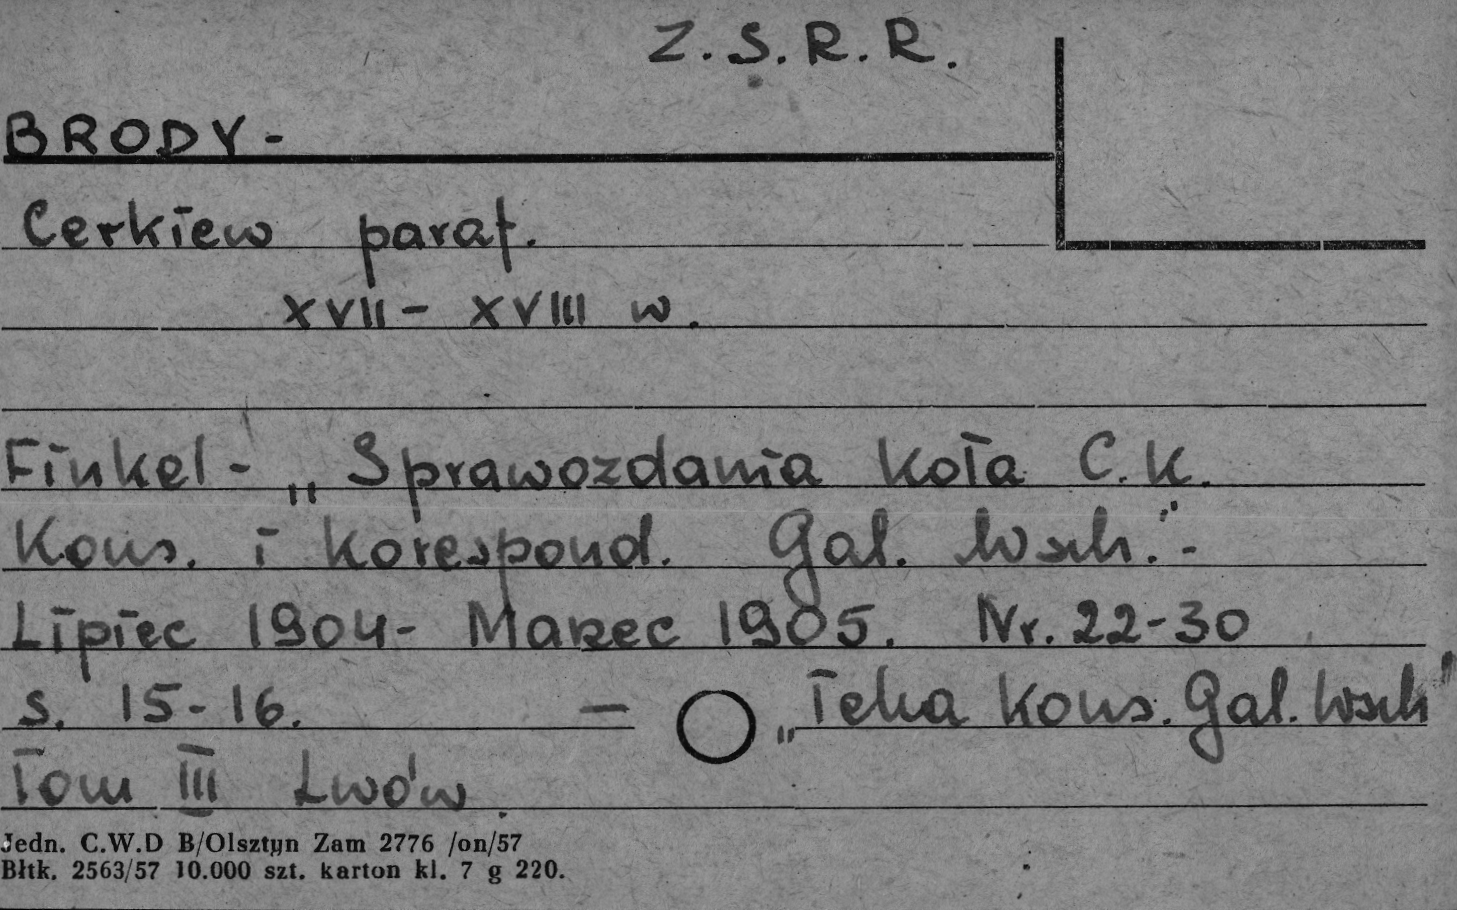 Z.S.R.R.
BRODY-
Cerkiew paraf.
XVII - XVIII w.
Finkel - „Sprawozdania Koła C.K.
Kons. i Korespond. Gal. Wsch." -
Lipiec 1904 - Marzec 1905. Nr. 22-30
s. 15-16. — „Teka Kons. Gal. Wsch"
Tom III Lwów.
Jedn. C.W.D B/Olsztyn Zam 2776 /on/57
Błtk. 2563/57 10.000 szt. karton kl. 7 g 220.